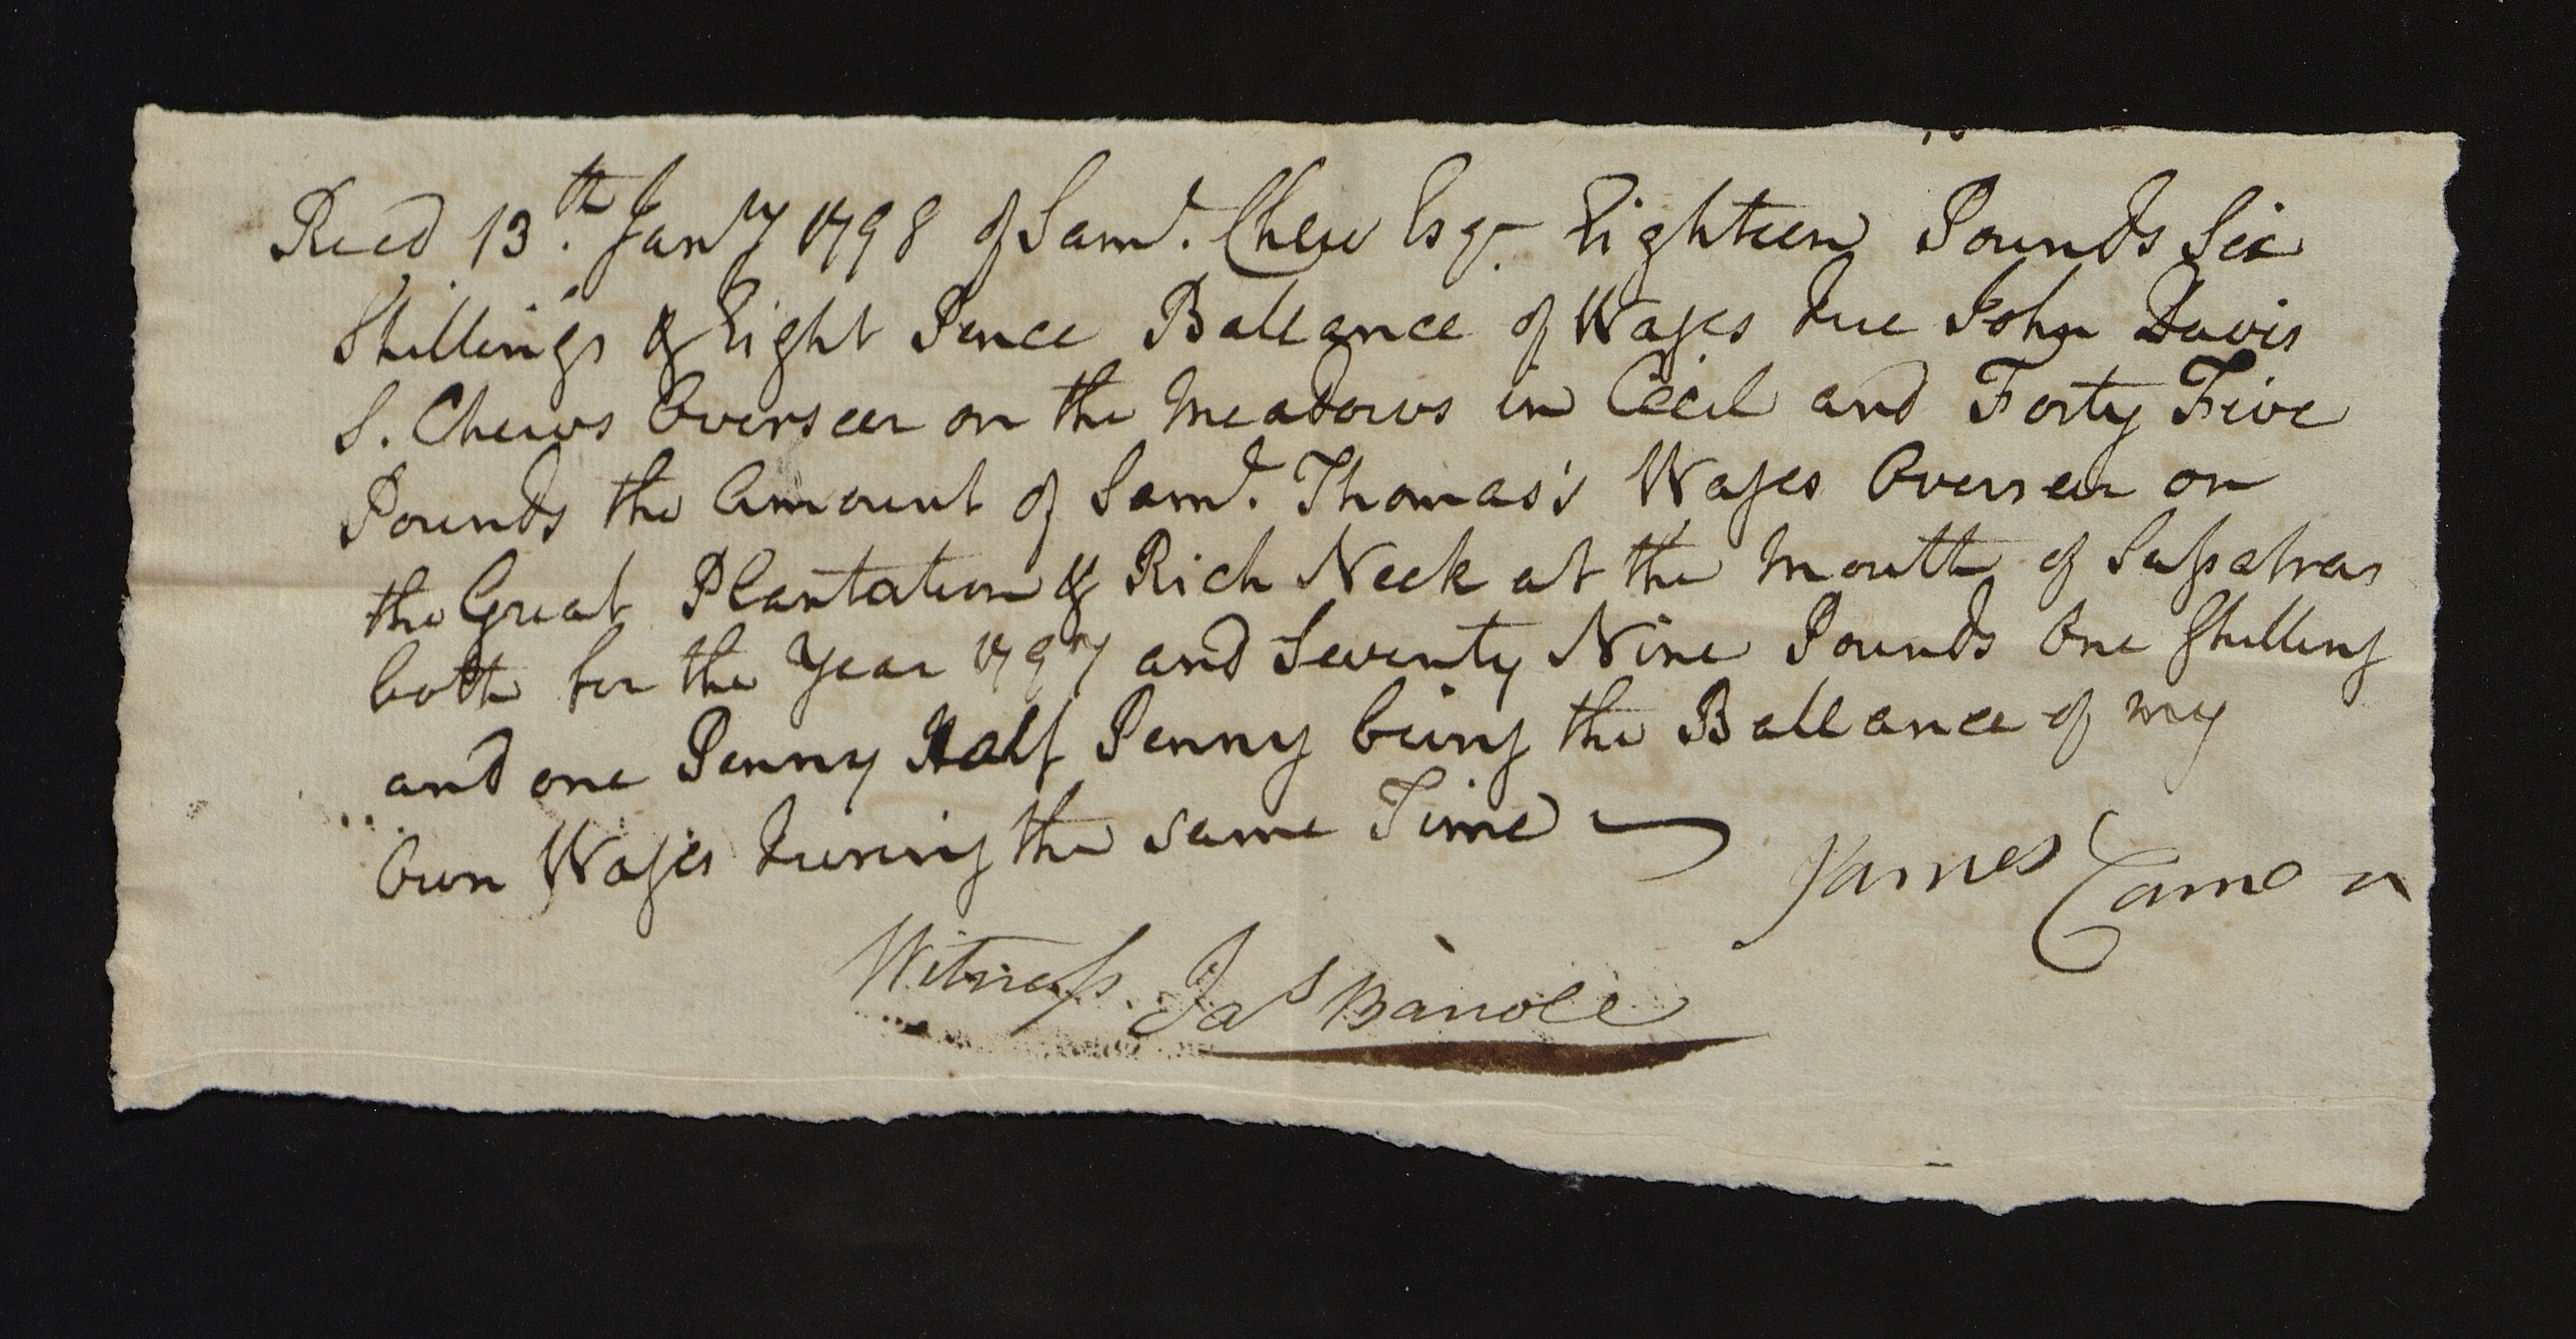 Recd 13.th Jany 1798 of Saml. Chew Esqr. Eighteen Pounds Six
Shillings & Eight Pence Ballance of Wages due John Davis
S. Chews Overseer on the Meadows in Cecil and Forty Five
Pounds the Amount of Saml. Thomas's Wages Overseer on
the Great Plantation & Rich Neck at the Mouth of Sassafras
both for the Year 1797 and Seventy Nine Pounds One Shilling
and one Penny Half Penny being the Ballance of my
Own Wages during the same Time
James
Witness. Jas